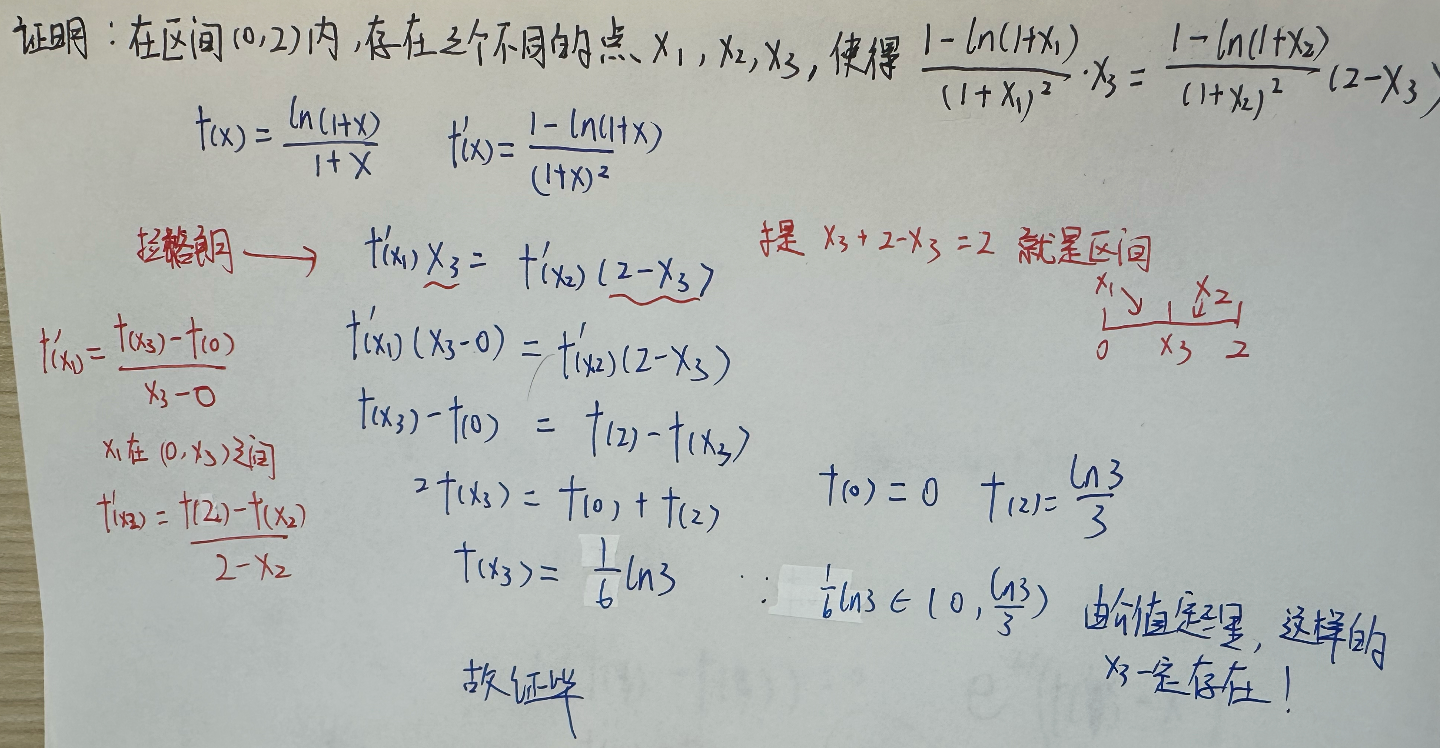 证明:在区间(0,2)内,存在三个不同的点 x₁, x₂, x₃, 使得 \frac{1-ln(1+x₁)}{(1+x₁)²}·x₃ = \frac{1-ln(1+x₂)}{(1+x₂)²}(2-x₃)
f(x) = \frac{ln(1+x)}{1+x} f'(x) = \frac{1-ln(1+x)}{(1+x)²}
拉格朗日 → f'(x₁)x₃ = f'(x₂)(2-x₃)
x₃+2-x₃=2 就是区间
x₁ x₂
0 x₃ 2
f'(x₁) = \frac{f(x₃)-f(0)}{x₃-0}
x₁在(0,x₃)之间
f'(x₂) = \frac{f(2)-f(x₂)}{2-x₂}
f'(x₁)(x₃-0) = f'(x₂)(2-x₃)
f(x₃)-f(0) = f(2)-f(x₃)
2f(x₃) = f(0)+f(2)
f(0)=0 f(2)=\frac{ln3}{3}
f(x₃) = \frac{1}{6}ln3
∵ \frac{1}{6}ln3 ∈ (0, \frac{ln3}{3}) 由介值定理, 这样的
x₃一定存在!
故证毕